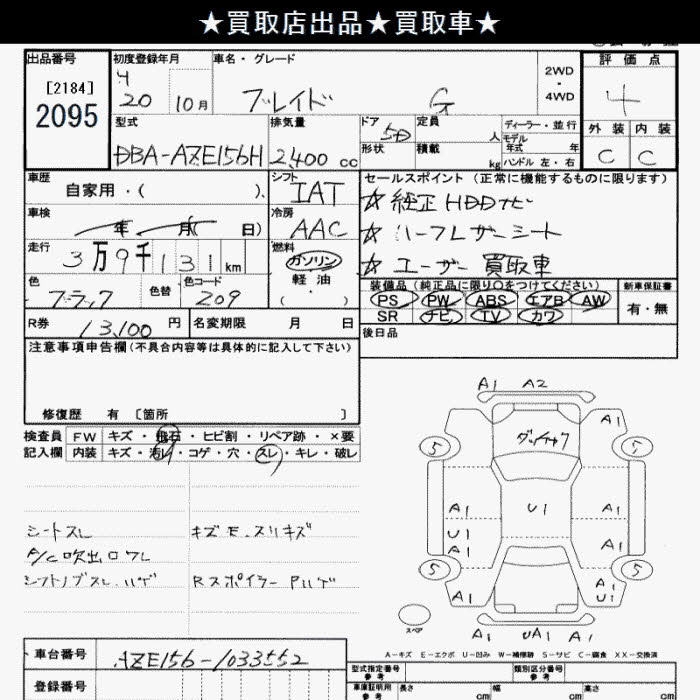 ★買取店出品★買取車★
出品番号
[2184]
2095
初度登録年月
H
20 10月
車名・グレード
ブレイド G
2WD
・
4WD
評価点
4
外装 内装
C C
型式
DBA-AZE156H
排気量
2,400 cc
ドア
5D
形状
定員
人
積載
kg
ディーラー・並行
モデル
年式 年
ハンドル 左・右
車歴
自家用・( )
シフト
IAT
車検
年 月( 日)
冷房
AAC
走行
3万9千131km
燃料
ガソリン
軽油
( ・ )
色
ブラック
色替
色コード
209
R券
13,100円
名変期限 月 日
セールスポイント(正常に機能するものに限ります)
☆ 純正HDDナビ
☆ ハーフレザーシート
☆ ユーザー買取車
装備品(純正品に限り○をつけてください)
PS PW ABS エアB AW
SR ナビ TV カワ
新車保証書
有・無
後日品
注意事項申告欄(不具合内容等は具体的に記入して下さい)
修復歴 有 〔箇所 〕
検査員
記入欄
FW キズ・飛石・ヒビ割・リペア跡・×要
内装 キズ・汚レ・コゲ・穴・スレ・キレ・破レ
シートスレ
A/C吹出口ワレ
シフトノブスレ、ハゲ
キズE、スリキズ
RスポイラーPハゲ
A1 A2
A1
5 ダッチャク 5
A1 U1 A1
U1
A1 A1
5 5
A1 A1
U1
スペア
A1 UA1 A1
A-キズ E-エクボ U-凹み W-補修跡 S-サビ C-腐食 XX-交換済
車台番号
AZE156-1033552
登録番号
型式指定番号
参考
類別区分番号
参考
車庫証明用
参考
長さ
cm
幅
cm
高さ
cm